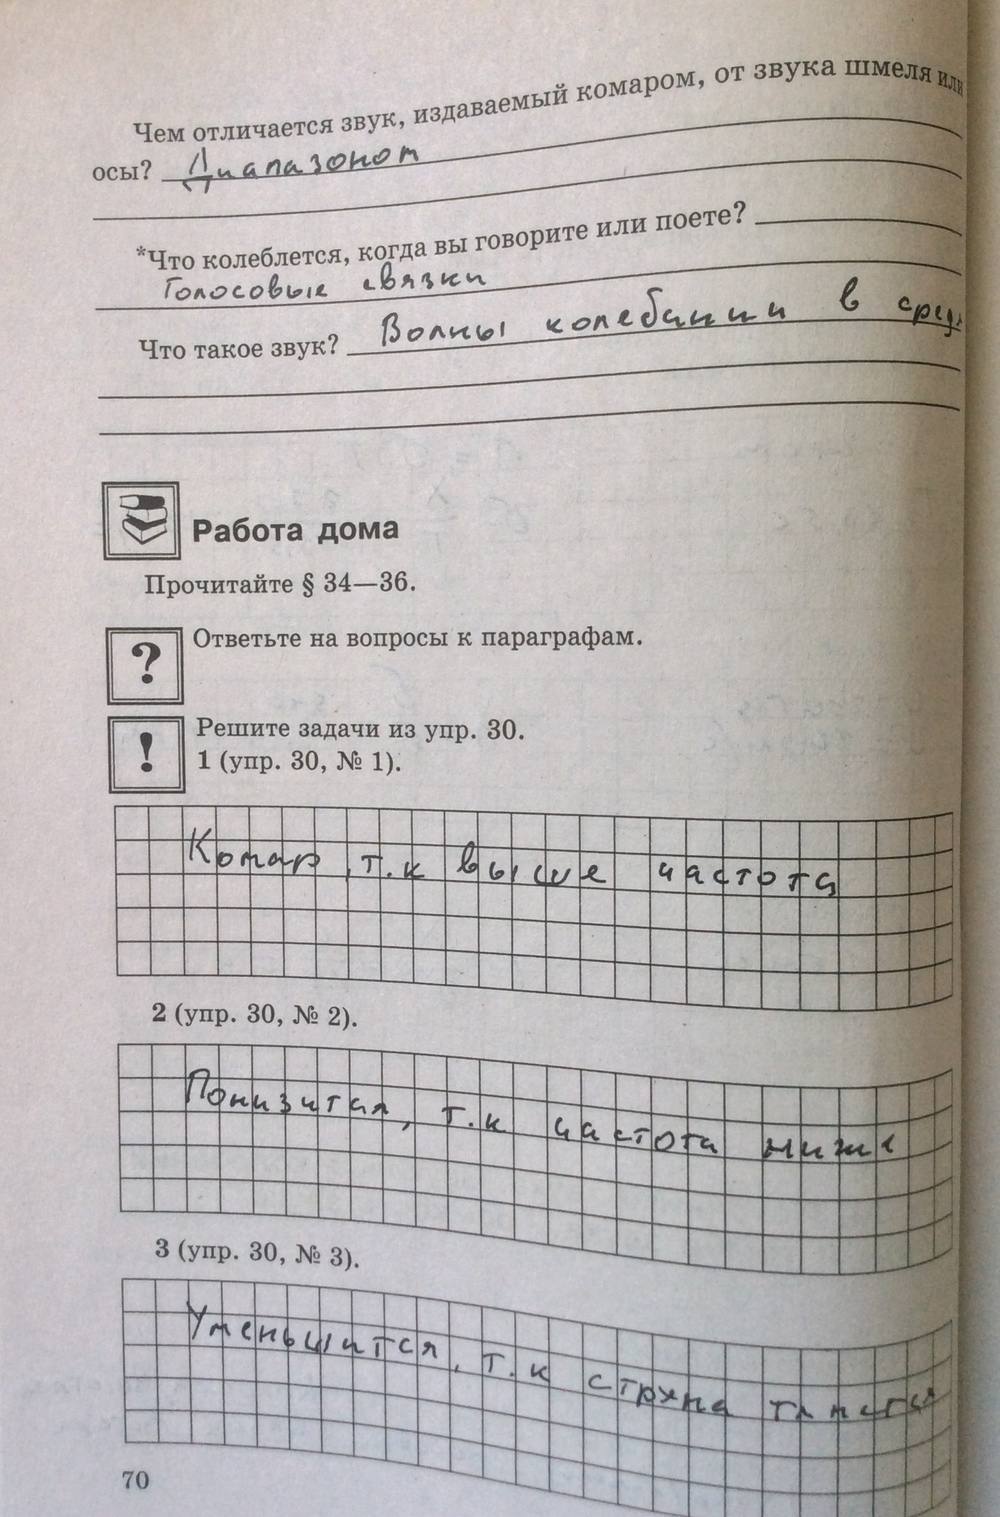 Чем отличается звук, издаваемый комаром, от звука шмеля или
осы? Диапазоном
*Что колеблется, когда вы говорите или поете?
Голосовые связки
Что такое звук? Волны колебании в сред
Работа дома
Прочитайте § 34—36.
? Ответьте на вопросы к параграфам.
! Решите задачи из упр. 30.
1 (упр. 30, № 1).
Комар, т.к выше частота
2 (упр. 30, № 2).
Понизится, т.к частота ниже
3 (упр. 30, № 3).
Уменьшится, т.к струна тянется
70